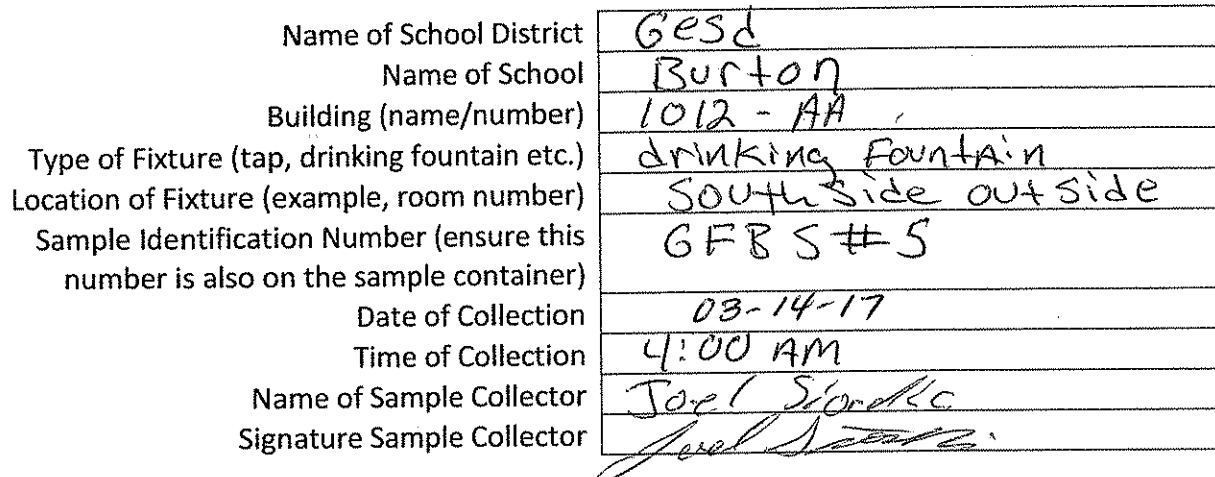 Name of School District Gesd
Name of School Burton
Building (name/number) 1012 - AA
Type of Fixture (tap, drinking fountain etc.) drinking Fountain
Location of Fixture (example, room number) South side outside
Sample Identification Number (ensure this
number is also on the sample container) GFBS#5
Date of Collection 03-14-17
Time of Collection 4:00 AM
Name of Sample Collector Joel
Signature Sample Collector Joel